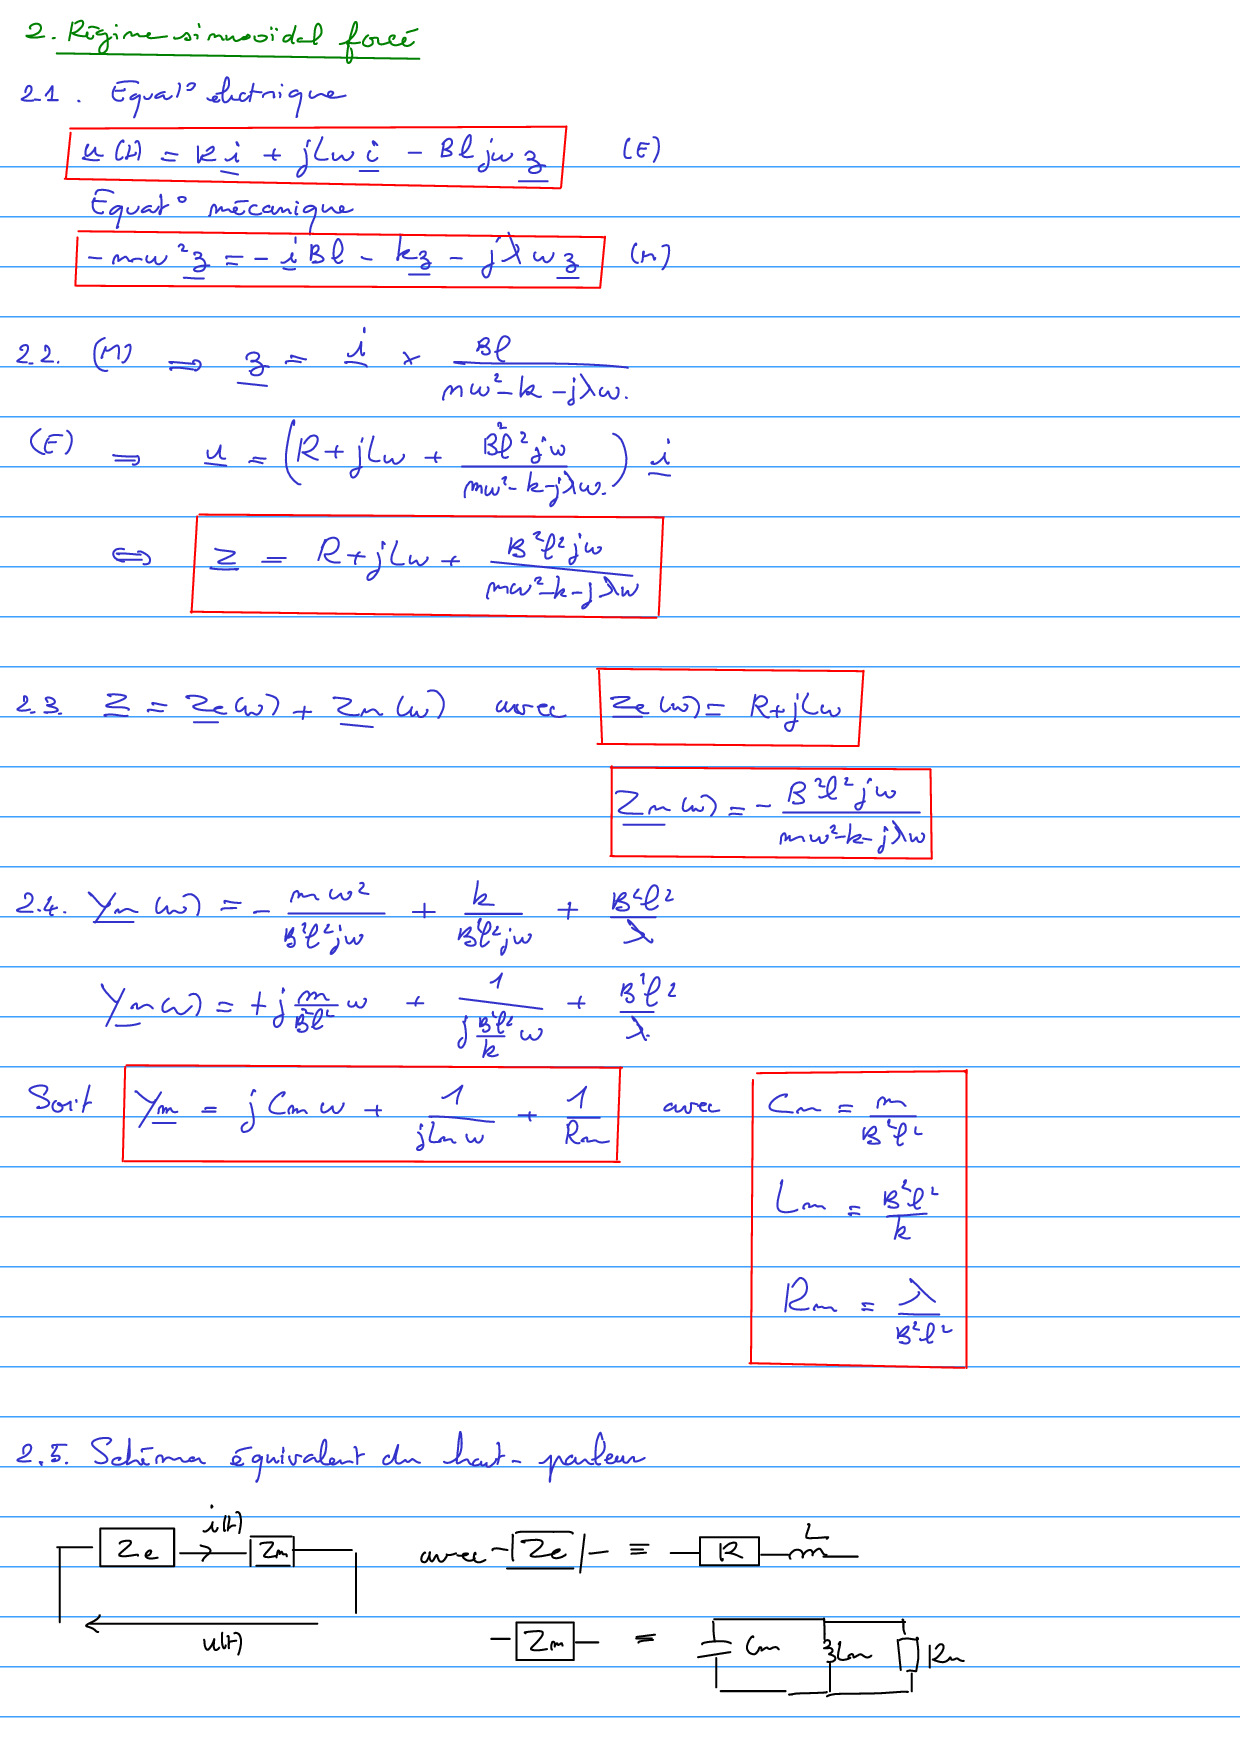 2. Régime sinusoïdal forcé
2.1. Equat° électrique
u(t) = R i + jLω i - Bl jω z (E)
Equat° mécanique
-mω² z = - i Bl - k z - jλω z (M)
2.2. (M) ⟹ z = i × Bl / (mω² - k - jλω.)
(E) ⟹ u = (R + jLω + B²l²jω / (mω² - k - jλω.)) i
⟺ Z = R + jLω + B²l²jω / (mω² - k - jλω)
2.3. Z = Ze(ω) + Zm(ω) avec Ze(ω) = R + jLω
Zm(ω) = - B²l²jω / (mω² - k - jλω)
2.4. Ym(ω) = - mω² / (B²l²jω) + k / (B²l²jω) + B²l² / λ
Ym(ω) = + j m/(B²l²) ω + 1 / (j B²l²/k ω) + B²l² / λ
Soit Ym = j Cm ω + 1 / (jLm ω) + 1 / Rm avec Cm = m / (B²l²)
Lm = B²l² / k
Rm = λ / (B²l²)
2.5. Schéma équivalent du haut-parleur
Ze i(t) Zm avec Ze ≡ R L
u(t) Zm = Cm Lm Rm